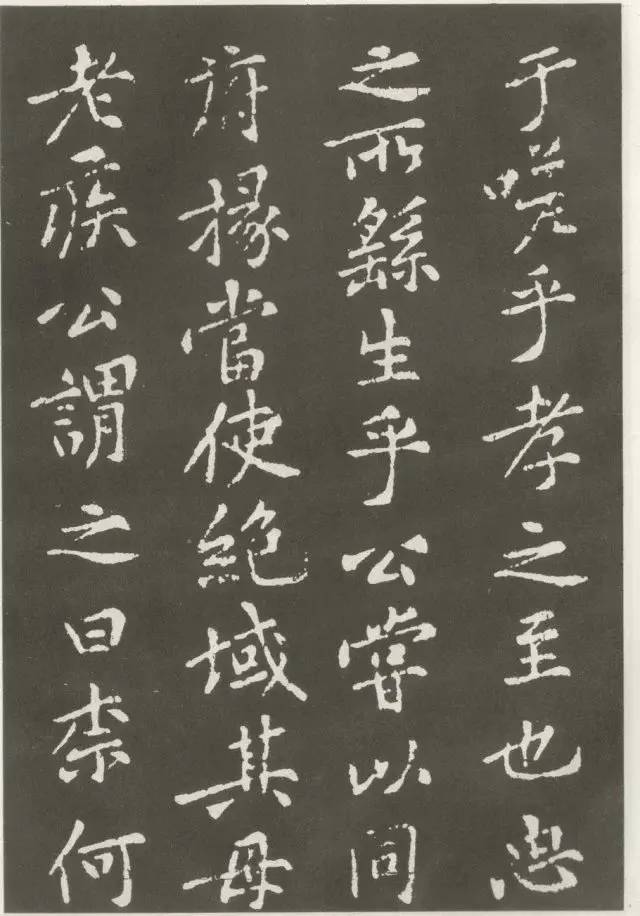 于嗟乎孝之至也忠
之所繇生乎公嘗以同
府掾當使絶域其母
老疾公謂之曰柰何